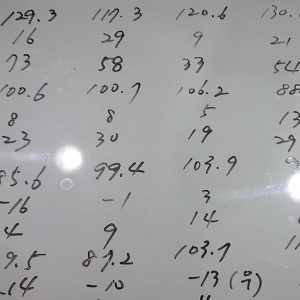 129.3 117.3 120.6 130.
16 29 9 21
73 58 33 54
100.6 100.7 106.2 88
8 8 5 13
23 30 19 29
85.6 99.4 103.9 9
-16 -1 3
4 9 14
9.5 87.2 103.7
-14 -10 -13 (우)